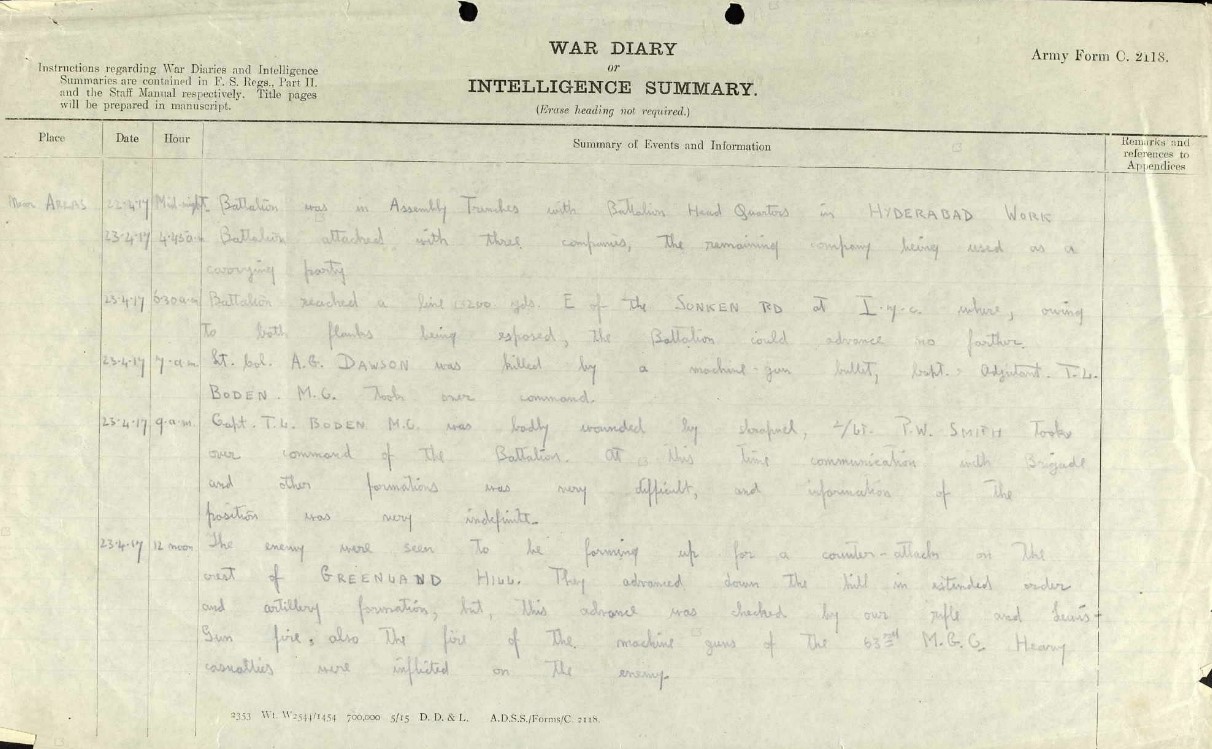 WAR DIARY
or
INTELLIGENCE SUMMARY.
(Erase heading not required.)
Army Form C. 2118.
Instructions regarding War Diaries and Intelligence
Summaries are contained in F. S. Regs., Part II.
and the Staff Manual respectively. Title pages
will be prepared in manuscript.
Place Date Hour Summary of Events and Information Remarks and
references to
Appendices
Near ARRAS 22.4.17 Mid-night Battalion was in Assembly Trenches with Battalion Head Quarters in HYDERABAD WORK
23.4.17 4.45a.m Battalion attacked with three companies, the remaining company being used as a
carrying party
23.4.17 6.30a.m Battalion reached a line 200 yds. E of the SUNKEN RD at I.7.c. where, owing
to both flanks being exposed, the Battalion could advance no farther.
23.4.17 7.a.m. Lt. Col. A.G. DAWSON was killed by a machine-gun bullet, Capt. & Adjutant. T.L.
BODEN. M.C. took over command.
23.4.17 9.a.m. Capt. T.L. BODEN M.C. was badly wounded by shrapnel, 2/Lt. P.W. SMITH took
over command of the Battalion. At this time communication with Brigade
and other formations was very difficult, and information of the
position was very indefinite.
23.4.17 12 noon The enemy were seen to be forming up for a counter-attack on the
crest of GREENLAND HILL. They advanced down the hill in extended order
and artillery formation, but, this advance was checked by our rifle and Lewis-
Gun fire, also the fire of the machine guns of the 63rd M.G.C. Heavy
casualties were inflicted on the enemy.
2353 Wt. W2544/1454 700,000 5/15 D. D. & L. A.D.S.S./Forms/C. 2118.